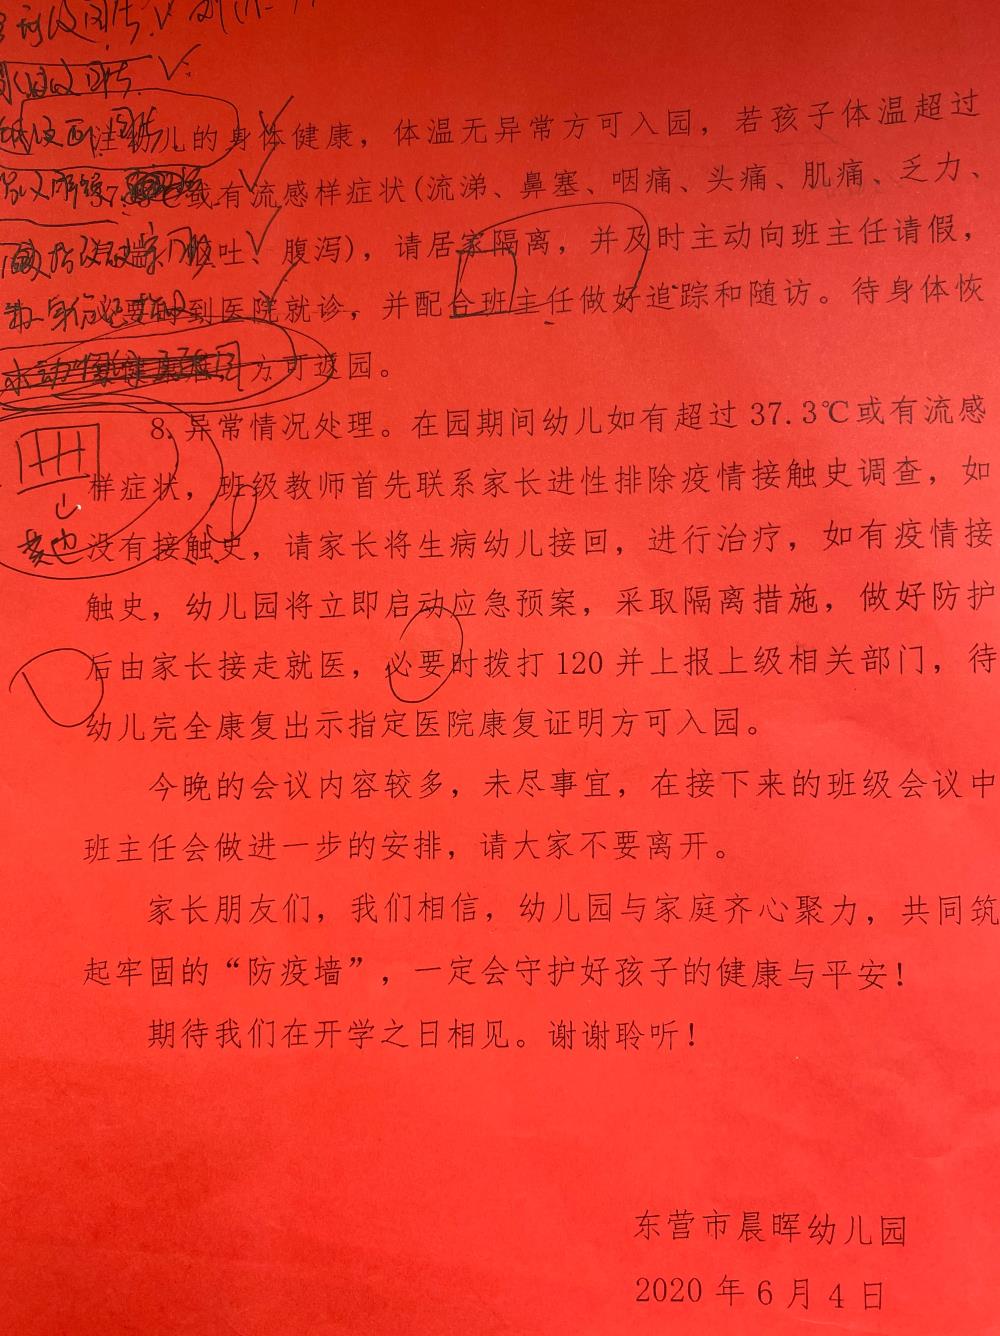 注幼儿的身体健康，体温无异常方可入园，若孩子体温超过
或有流感样症状(流涕、鼻塞、咽痛、头痛、肌痛、乏力、
吐、腹泻)，请居家隔离，并及时主动向班主任请假，
必要时到医院就诊，并配合班主任做好追踪和随访。待身体恢
方可返园。
8. 异常情况处理。在园期间幼儿如有超过 37.3℃或有流感
样症状，班级教师首先联系家长进性排除疫情接触史调查，如
没有接触史，请家长将生病幼儿接回，进行治疗，如有疫情接
触史，幼儿园将立即启动应急预案，采取隔离措施，做好防护
后由家长接走就医，必要时拨打 120 并上报上级相关部门，待
幼儿完全康复出示指定医院康复证明方可入园。
今晚的会议内容较多，未尽事宜，在接下来的班级会议中
班主任会做进一步的安排，请大家不要离开。
家长朋友们，我们相信，幼儿园与家庭齐心聚力，共同筑
起牢固的“防疫墙”，一定会守护好孩子的健康与平安！
期待我们在开学之日相见。谢谢聆听！
东营市晨晖幼儿园
2020 年 6 月 4 日